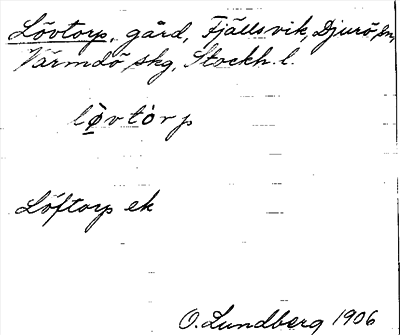 Lövtorp, gård, Fjällsvik, Djurö sn,
Värmdö skg, Stockh. l.
lø̀vtòrp
Löftorp ek
O. Lundberg 1906